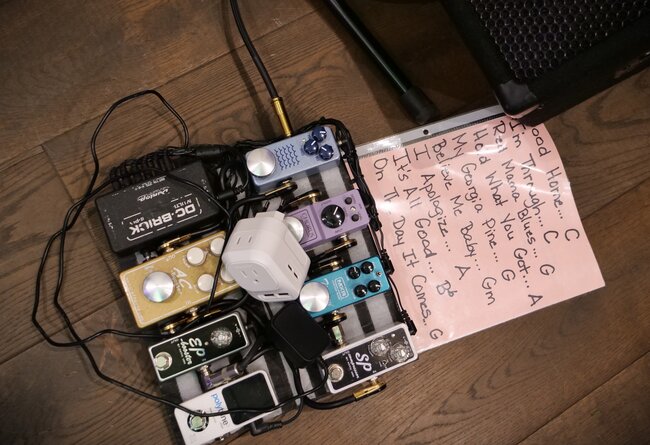 ood Home... C
I'm Through... C
Red Mama Blues... G
Hold What You Got... A
Mr Georgia Pine... G
Believe Me Baby... Gm
I Apologize... A
It's All Good... Bb
On The Day It Comes.. G
Dunlop
DC-BRICK
AC
EP
booster
SP
polytune